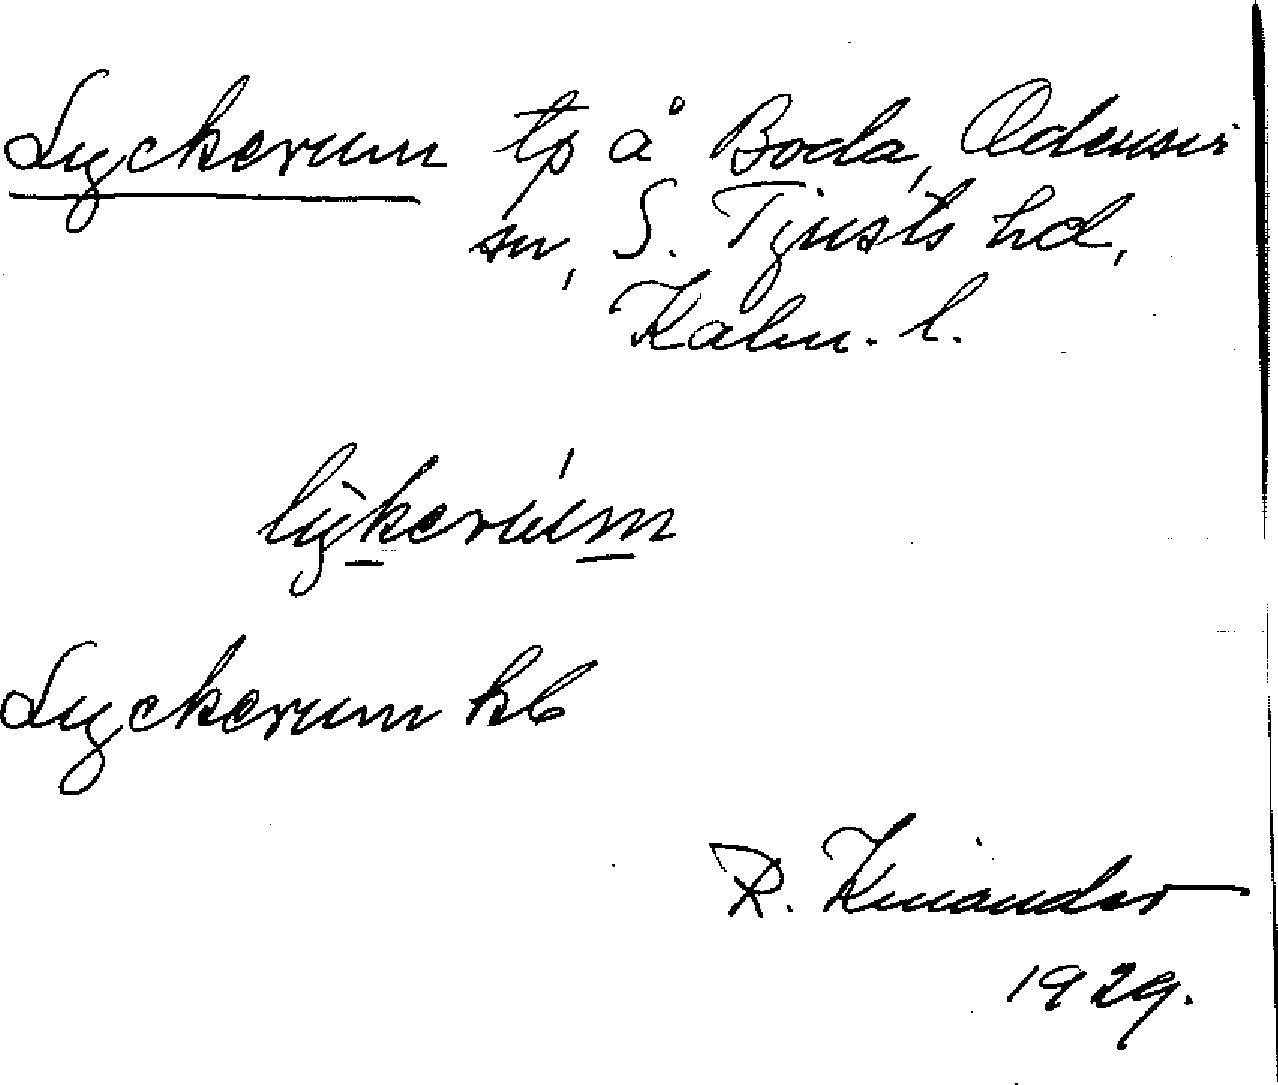 Lyckerum tp å Boda, Odensvi
sn, S. Tjusts hd,
Kalm. l.
lỳkerúm
Lyckerum kb
R. Kinander
1929.